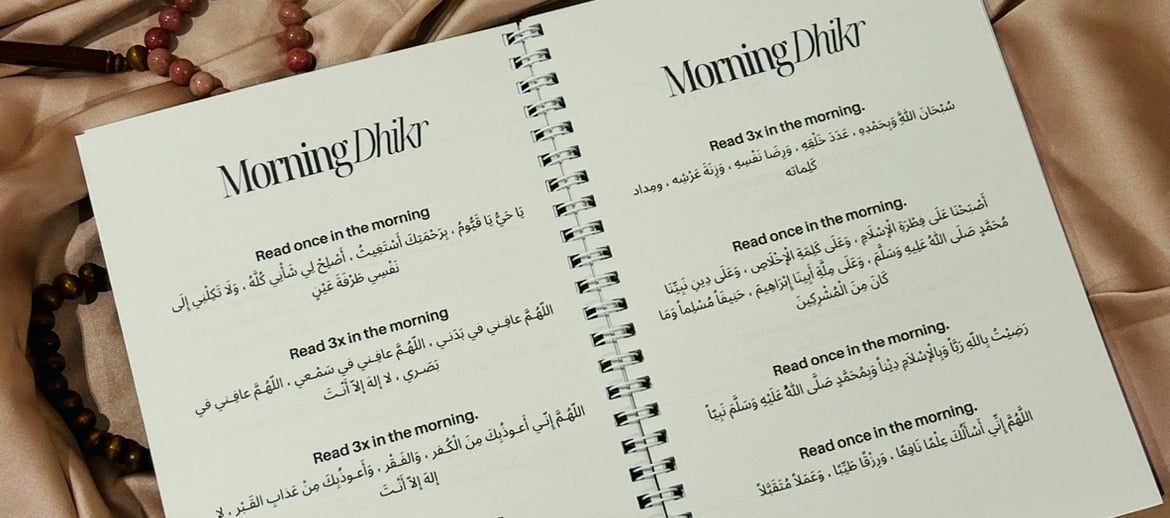 Morning Dhikr
Read once in the morning
يَا حَيُّ يَا قَيُّومُ ، بِرَحْمَتِكَ أَسْتَغِيثُ ، أَصْلِحْ لِي شَأْنِي كُلَّهُ ، وَلَا تَكِلْنِي إِلَى
نَفْسِي طَرْفَةَ عَيْنٍ
Read 3x in the morning
اللّهُمَّ عافِـني في بَدَني ، اللّهُمَّ عافِـني في سَمْـعي ، اللّهُمَّ عافِـني في
بَصَـري ، لا إلهَ إلاّ أَنْـتَ
Read 3x in the morning.
اللّهُمَّ إنّـي أَعـوذُبِكَ مِنَ الْكُـفر ، وَالفَـقْر ، وَأَعـوذُبِكَ مِنْ عَذابِ القَـبْر ، لا
إلهَ إلاّ أَنْـتَ
Morning Dhikr
Read 3x in the morning.
سُبْحَانَ اللَّهِ وَبِحَمْدِهِ ، عَدَدَ خَلْقِهِ ، وَرِضَا نَفْسِهِ ، وَزِنَةَ عَرْشِه ، ومِداد
كَلِماته
Read once in the morning.
أَصْبَحْنَا عَلَى فِطْرَةِ الْإِسْلَامِ ، وَعَلَى كَلِمَةِ الْإِخْلَاصِ ، وَعَلَى دِينِ نَبِيِّنَا
مُحَمَّدٍ صَلَّى اللهُ عَلَيهِ وَسَلَّمَ ، وَعَلَى مِلَّةِ أَبِينَا إِبْرَاهِيمَ ، حَنِيفَاً مُسْلِماً وَمَا
كَانَ مِنَ الْمُشْرِكِينَ
Read once in the morning.
رَضِيْتُ بِاللَّهِ رَبَّاً وَبِالْإِسْلَامِ دِيْناً وَبِمُحَمَّدٍ صَلَّى اللَّهُ عَلَيْهِ وَسَلَّمَ نَبِيّاً
Read once in the morning.
اللَّهُمَّ إِنِّي أَسْأَلُكَ عِلْمًا نَافِعًا ، وَرِزْقًا طَيِّبًا ، وَعَمَلاً مُتَقَبَّلاً